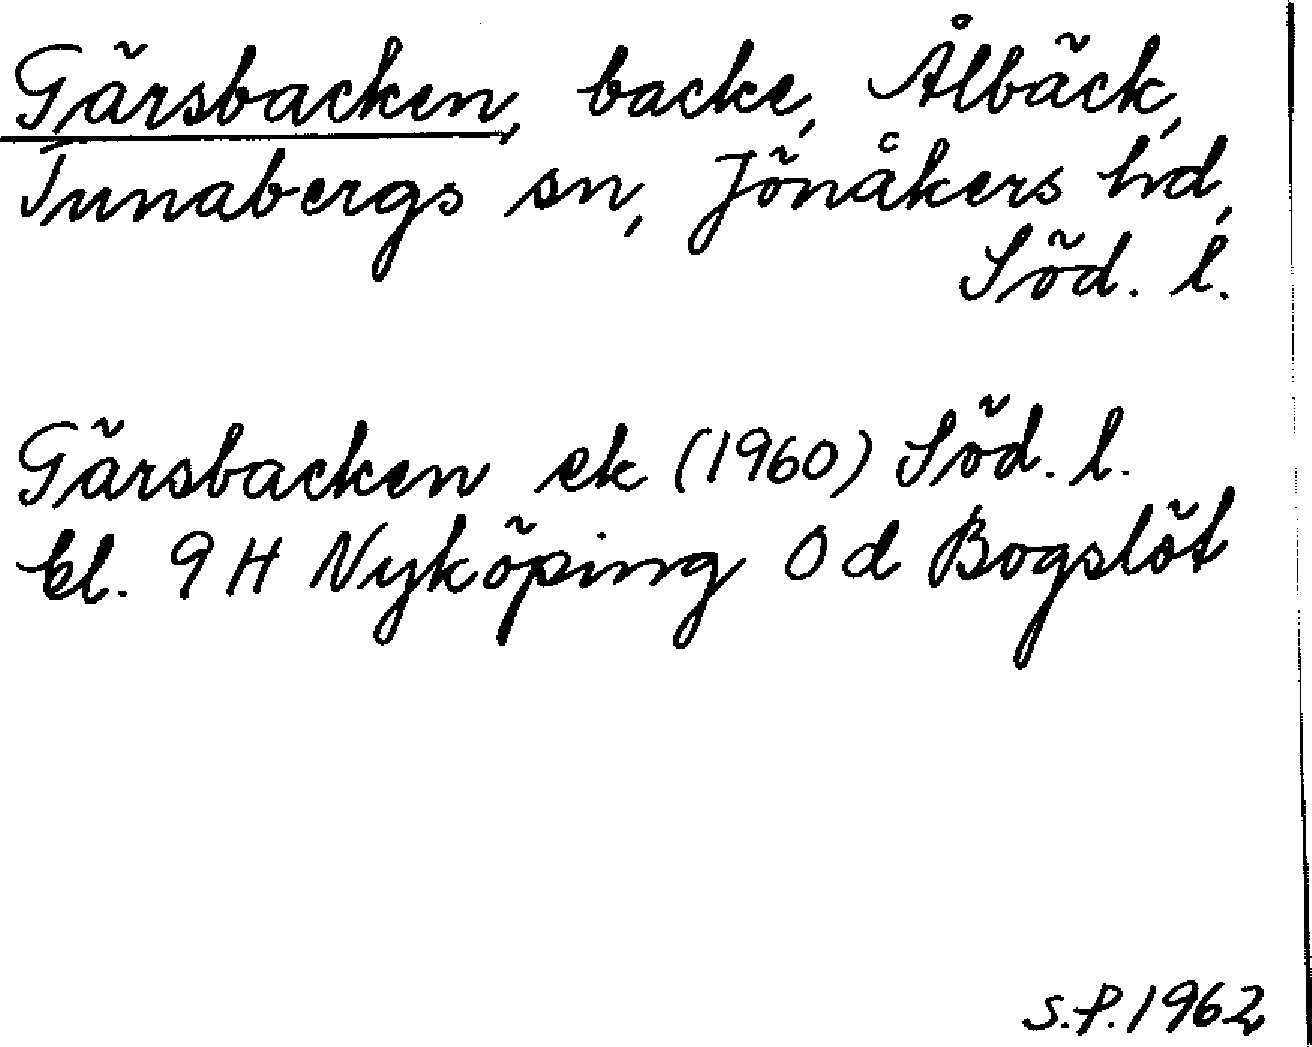 Gärsbacken, backe, Ålbäck,
Tunabergs sn, Jönåkers hd,
Söd. l.
Gärsbacken ek (1960) Söd. l.
bl. 9 H Nyköping 0 d Bogslöt
S.P. 1962